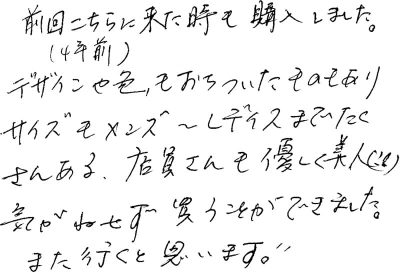 前回こちらに来た時も購入しました。
(4年前)
デザインや色,もおちついたものもあり
サイズもメンズ～レディスまでたく
さんある、店員さんも優しく美人(^^)
気がねせず買うことができました。
また行くと思います。〃